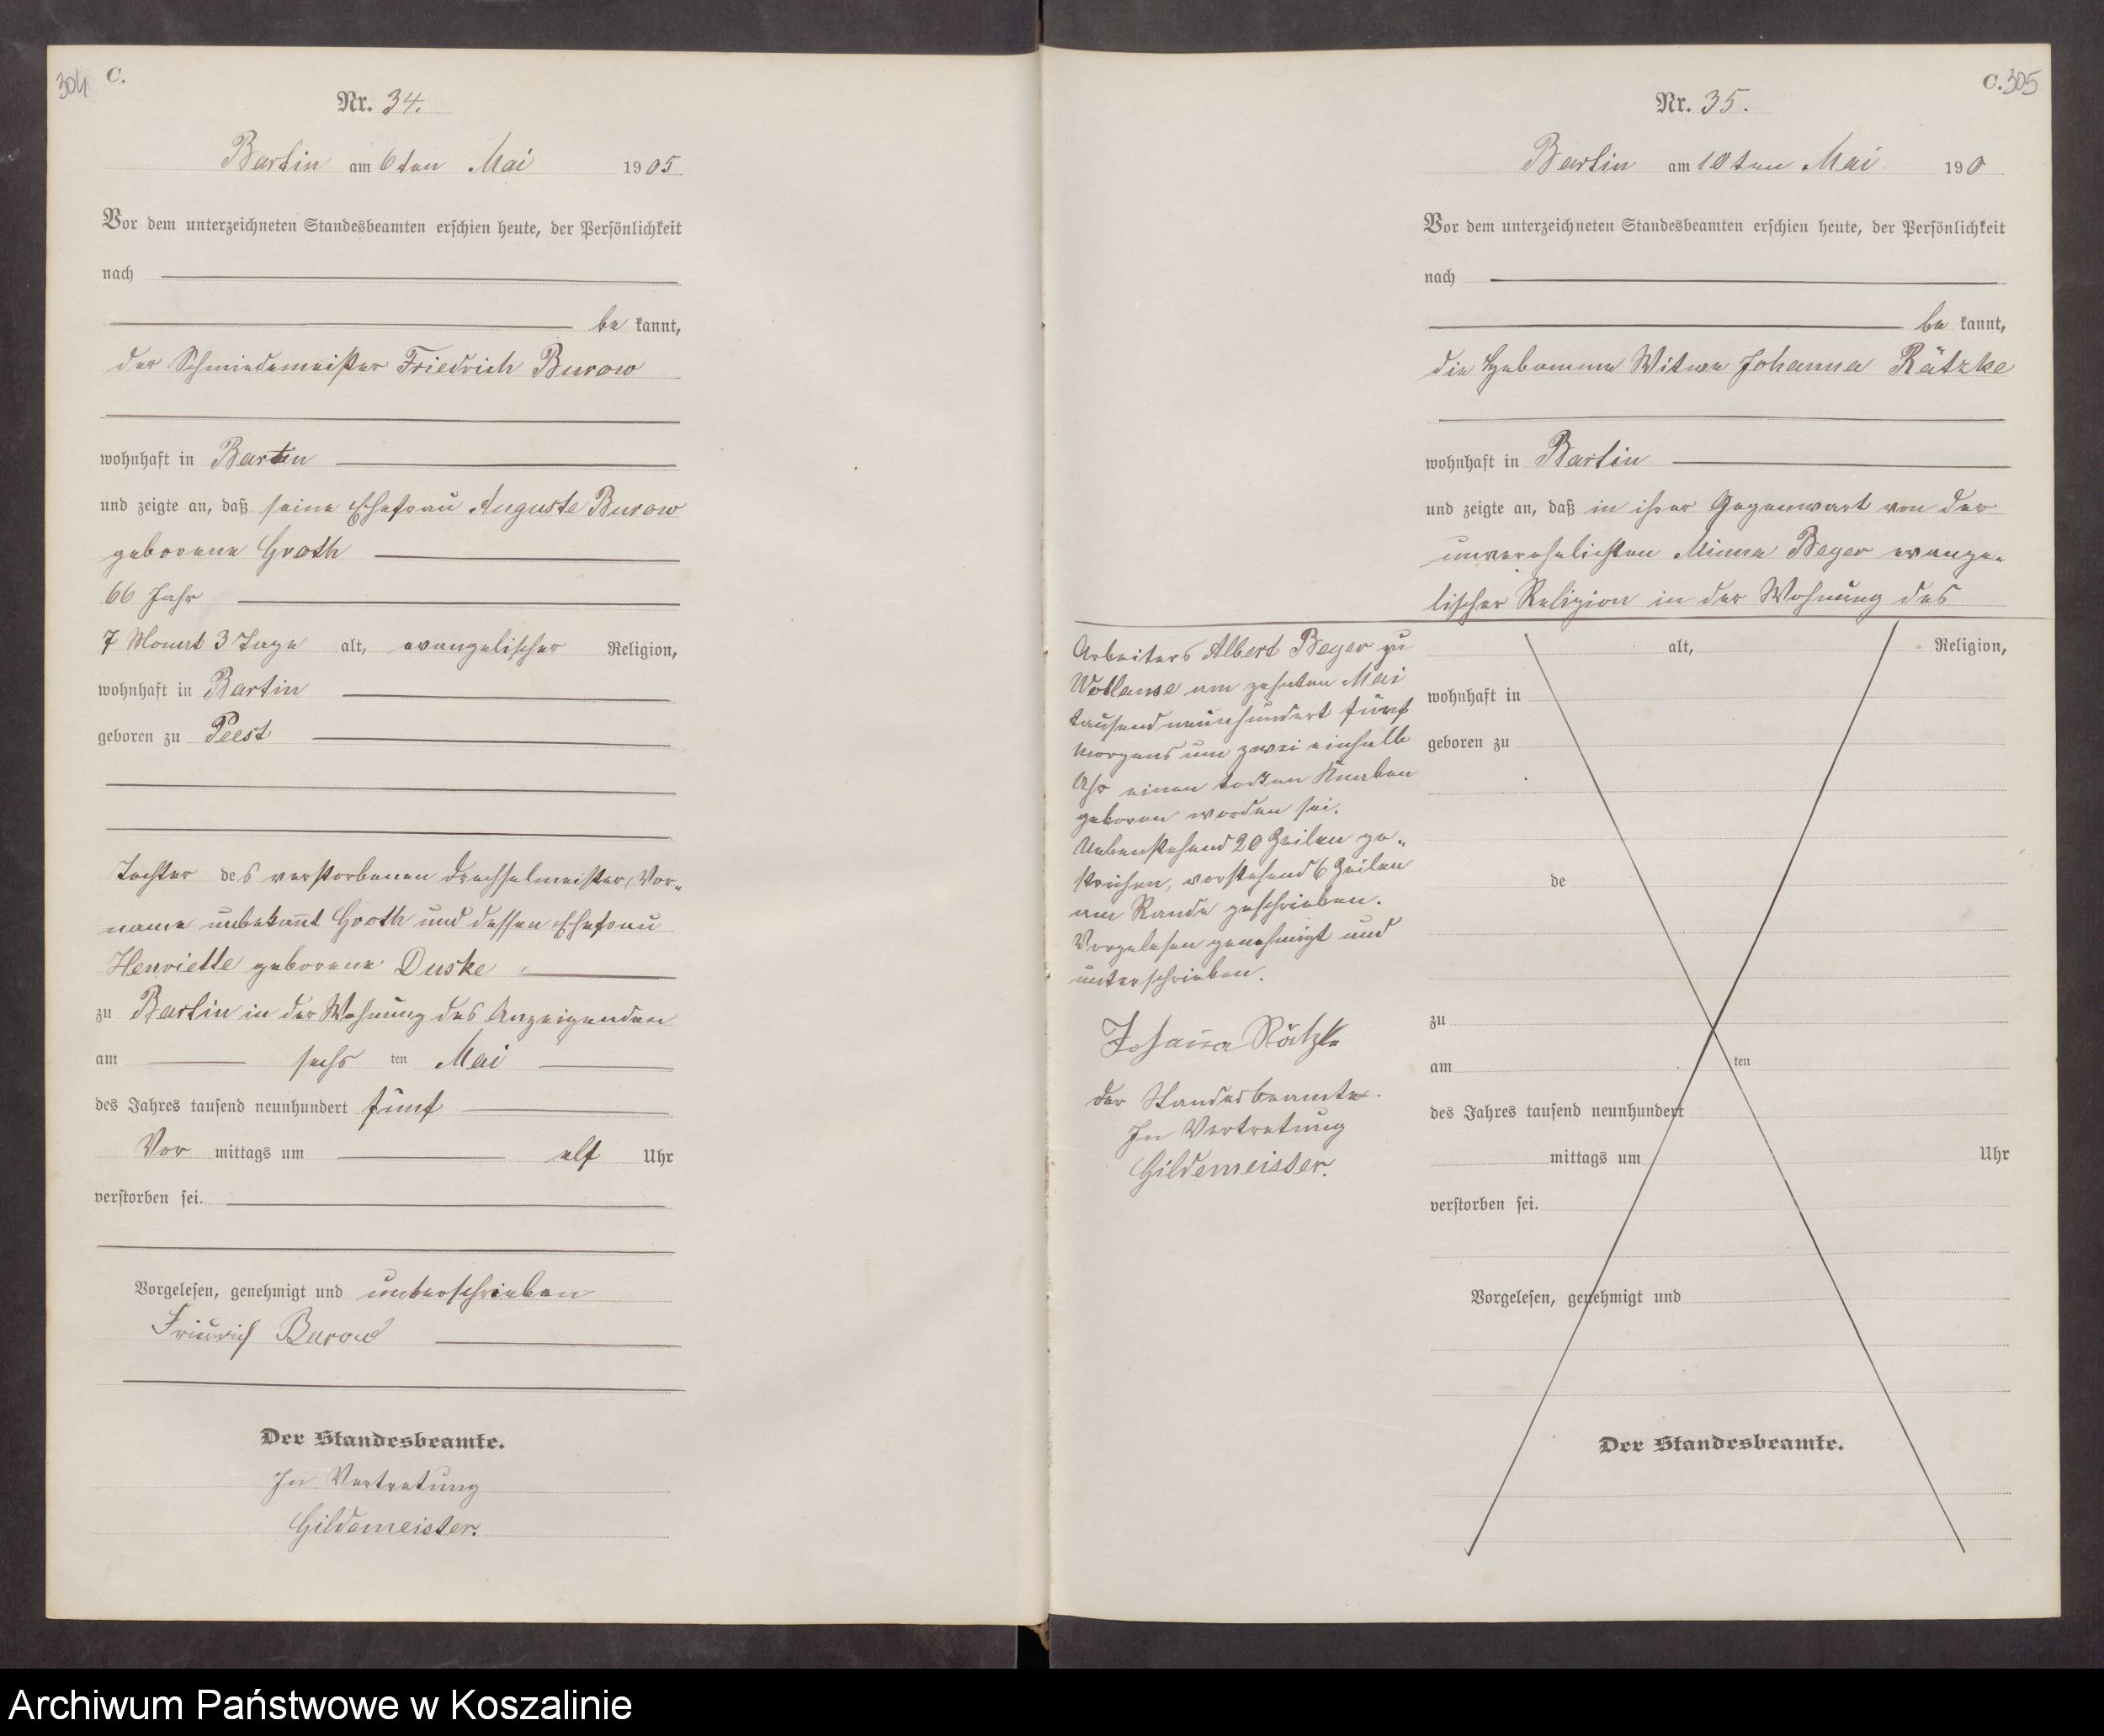 304 C.
Nr. 34.
Bartin am 6ten Mai 1905
Vor dem unterzeichneten Standesbeamten erschien heute, der Persönlichkeit
nach
be kannt,
der Schmiedemeister Friedrich Burow
wohnhaft in Bartin
und zeigte an, daß seine Ehefrau Auguste Burow
geborene Groth
66 Jahr
7 Monat 3 Tage alt, evangelischer Religion,
wohnhaft in Bartin
geboren zu Peest
Tochter des verstorbenen Drechselmeister, Vor-
name unbekannt Groth und dessen Ehefrau
Henriette geborene Duske
zu Bartin in der Wohnung des Anzeigenden
am sechs ten Mai
des Jahres tausend neunhundert fünf
Vor mittags um elf Uhr
verstorben sei.
Vorgelesen, genehmigt und unterschrieben
Friedrich Burow
Der Standesbeamte.
In Vertretung
Gildemeister.
C. 305
Nr. 35.
Bartin am 10ten Mai 190
Vor dem unterzeichneten Standesbeamten erschien heute, der Persönlichkeit
nach
be kannt,
die Hebamme Witwe Johanna Rätzke
wohnhaft in Bartin
und zeigte an, daß in ihrer Gegenwart von der
unverehelichten Minna Beyer evange-
lischer Religion in der Wohnung des
Arbeiters Albert Beyer zu
Woblanse am zehnten Mai
tausend neunhundert fünf
morgens um zwei einhalb
Uhr einen todten Knaben
geboren worden sei.
Nebenstehend 20 Zeilen ge-
strichen, vorstehend 6 Zeilen
am Rande geschrieben.
Vorgelesen genehmigt und
unterschrieben.
Johanna Rätzke
Der Standesbeamte.
In Vertretung
Gildemeister.
alt, Religion,
wohnhaft in
geboren zu
de
zu
am ten
des Jahres tausend neunhundert
mittags um Uhr
verstorben sei.
Vorgelesen, genehmigt und
Der Standesbeamte.
Archiwum Państwowe w Koszalinie